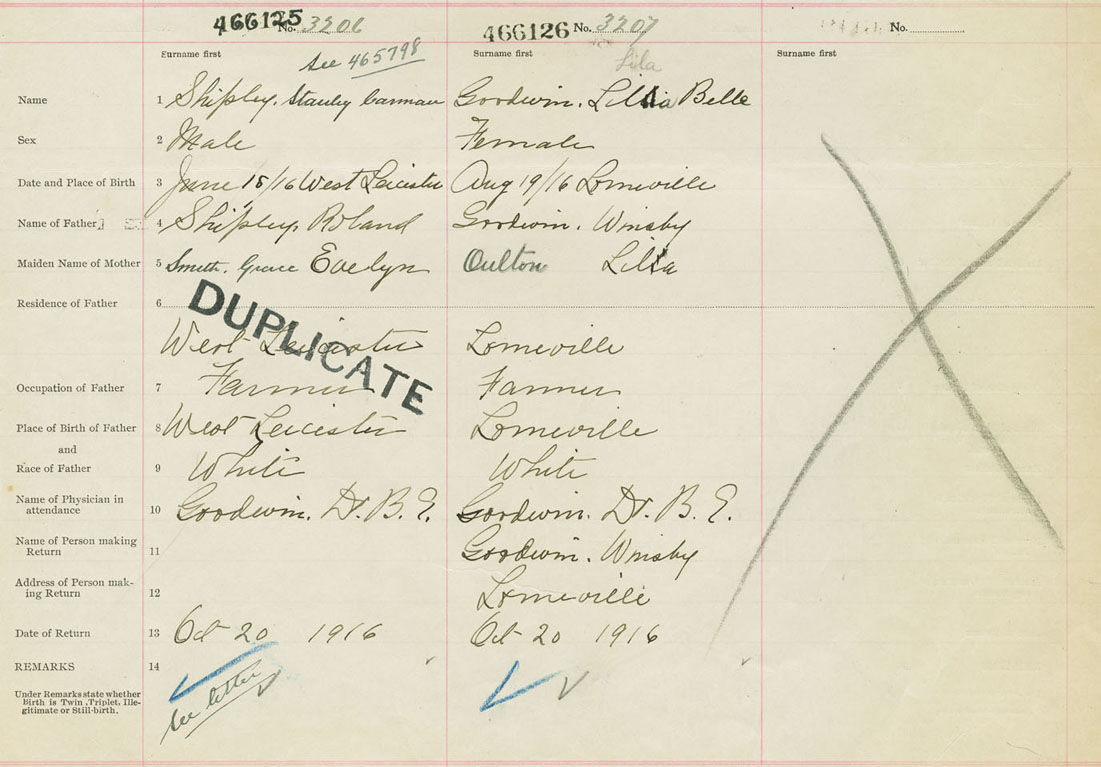 466125 No. 3206 466126 No. 3207 No.
Surname first See 465798 Surname first Lila Surname first
Name 1 Shipley. Stanley Carman Goodwin. Lilia Belle
Sex 2 Male Female
Date and Place of Birth 3 June 15/16 West Leicister Aug 19/16 Lorneville
Name of Father 4 Shipley. Roland Goodwin. Winsby
Maiden Name of Mother 5 Smith. Grace Evelyn Oulton Lila
Residence of Father 6
DUPLICATE
West Leicister Lorneville
Occupation of Father 7 Farmer Farmer
Place of Birth of Father 8 West Leicister Lorneville
and
Race of Father 9 White White
Name of Physician in
attendance 10 Goodwin. Dr. B. E. Goodwin. Dr. B. E.
Name of Person making
Return 11 Goodwin. Winsby
Address of Person mak-
ing Return 12 Lorneville
Date of Return 13 Oct 20 1916 Oct 20 1916
REMARKS 14
See letter
Under Remarks state whether
Birth is Twin, Triplet, Ille-
gitimate or Still-birth.